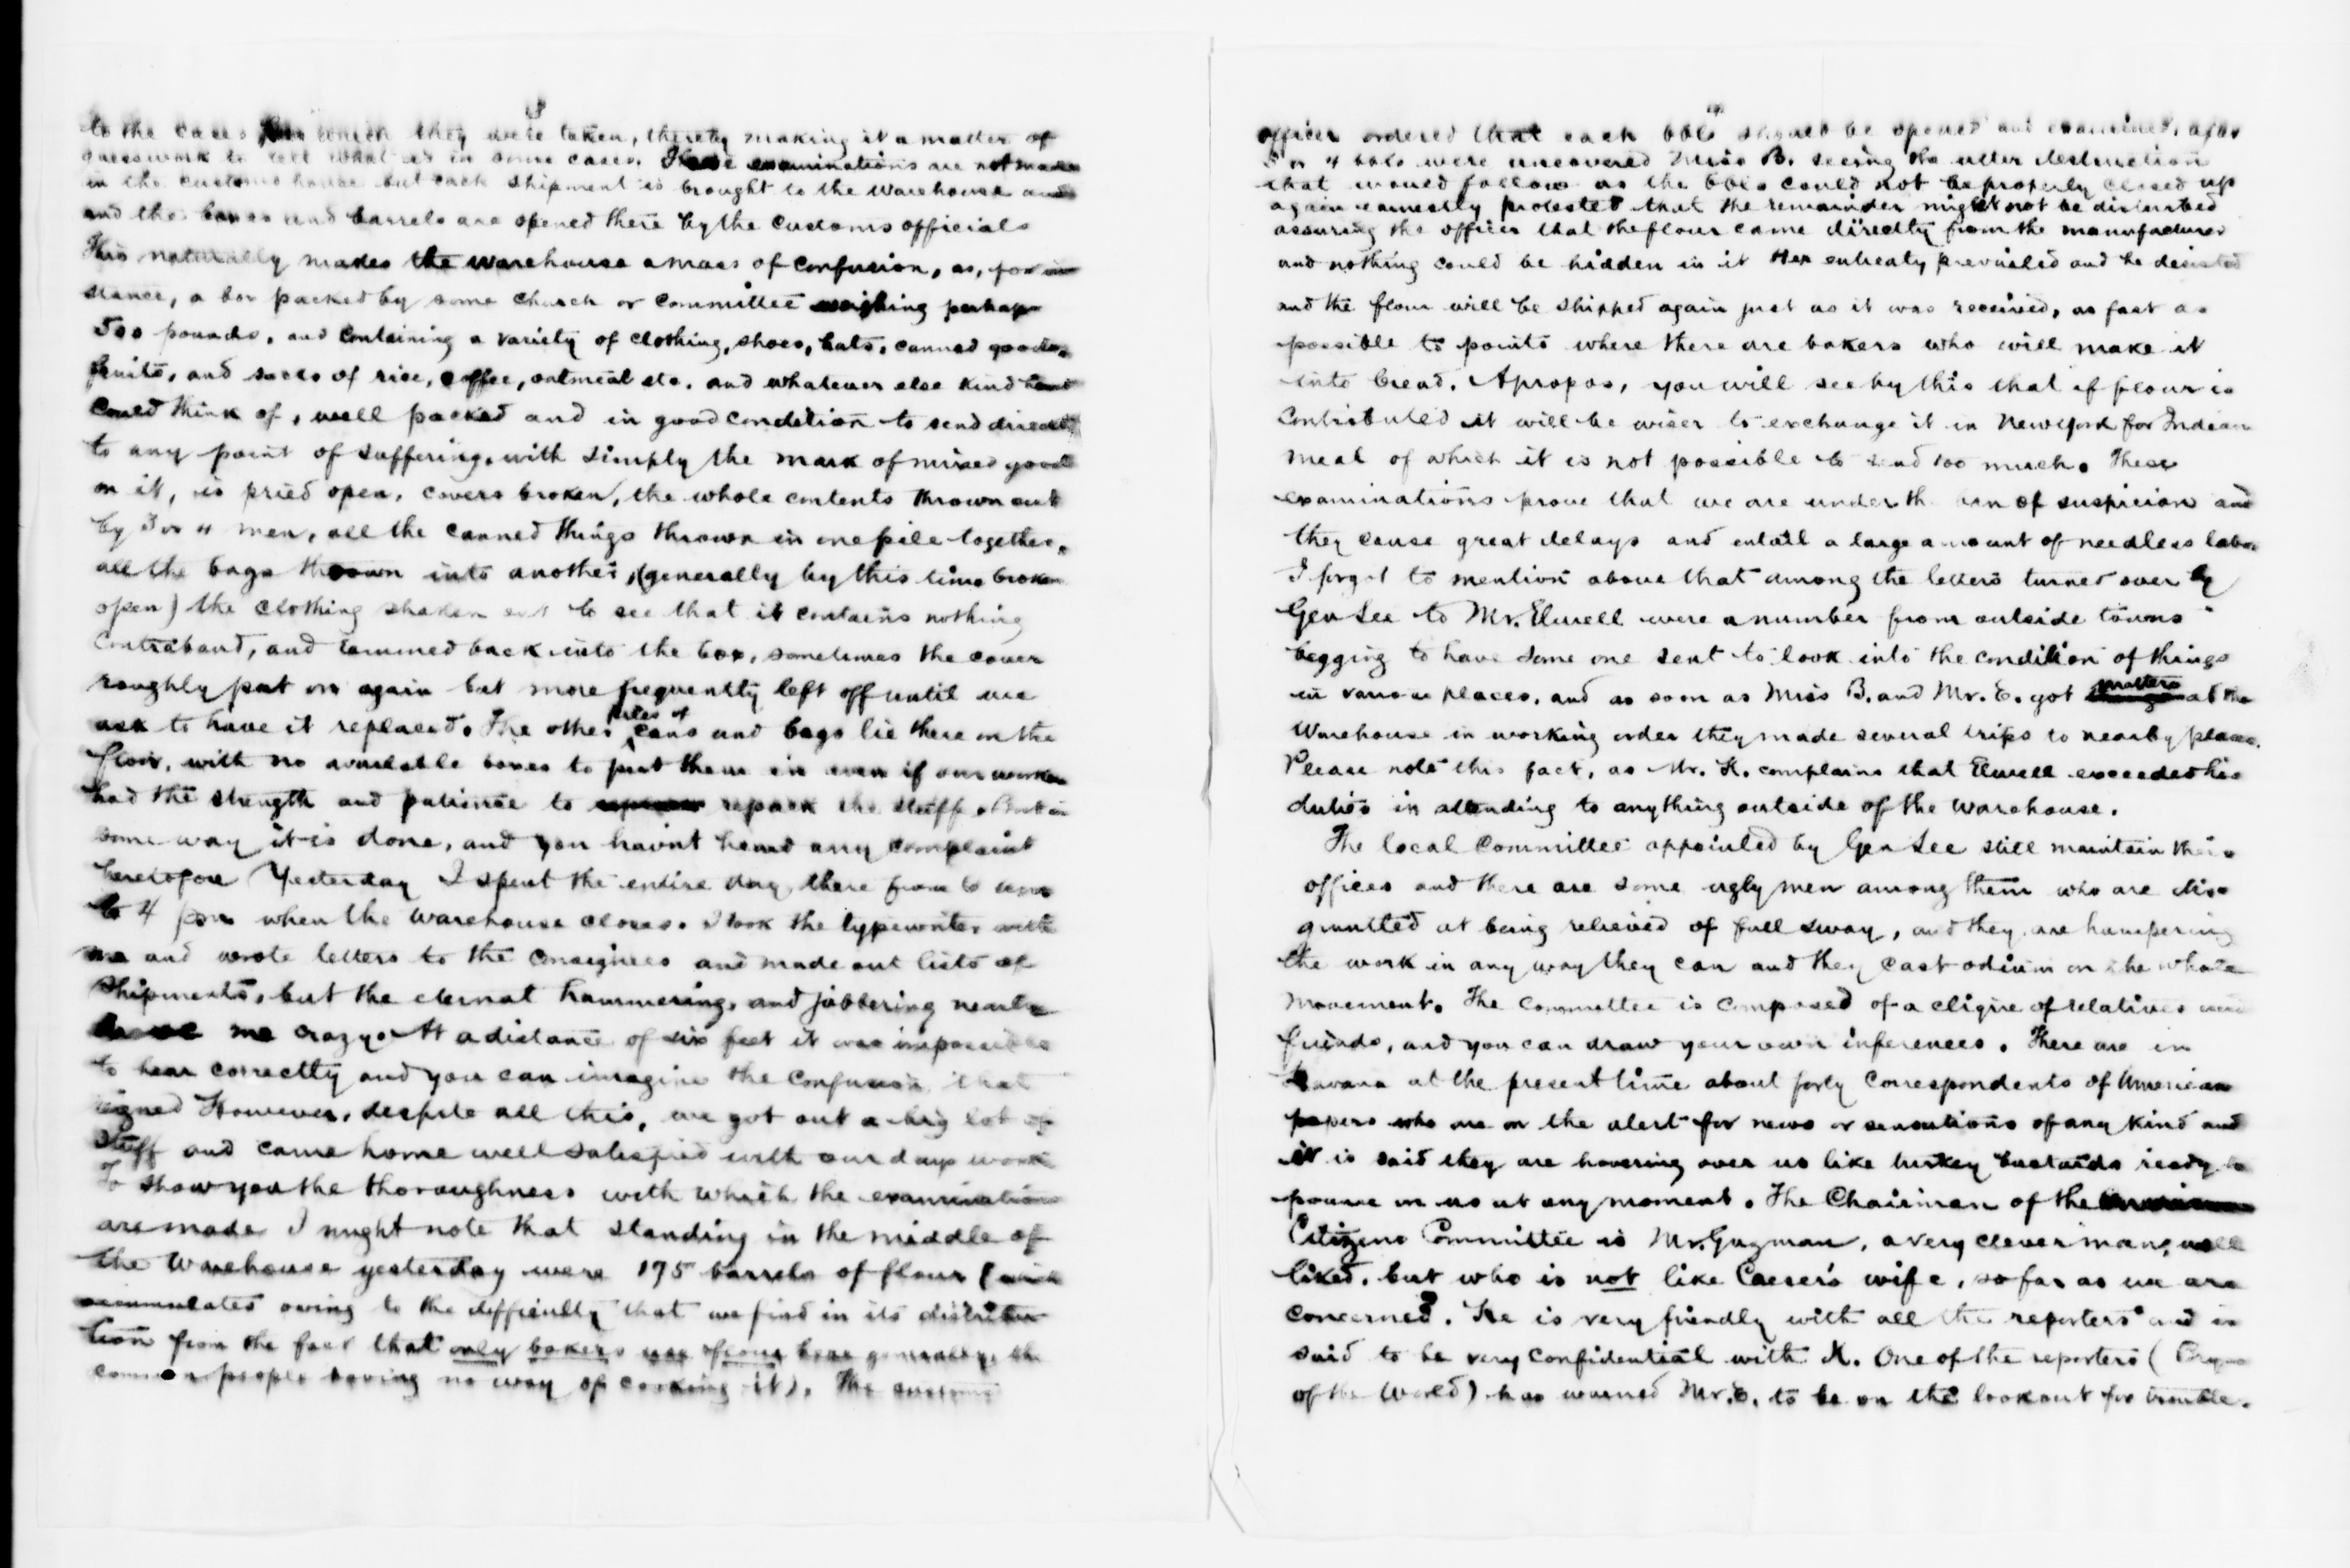 to the cases from which they were taken, thereby making it a matter of
guesswork to tell what is in some cases. These examinations are not made
in the customs house but each shipment is brought to the warehouse and
and the boxes and barrels are opened there by the customs officials
This naturally makes the warehouse a mass of confusion, as, for in
stance, a box packed by some church or committee weighing perhaps
500 pounds, and containing a variety of clothing, shoes, hats, canned goods,
fruits, and sacks of rice, coffee, oatmeal etc. and whatever else kind
could think of, well packed and in good condition to send direct
to any point of suffering, with simply the mark of mixed goods
on it, is pried open, covers broken, the whole contents thrown out
by 3 or 4 men, all the canned things thrown in one pile together,
all the bags thrown into another, (generally by this time broken
open) the clothing shaken out to see that it contains nothing
contraband, and rammed back into the box, sometimes the cover
roughly put on again but more frequently left off until we
ask to have it replaced. The other piles of cans and bags lie there on the
floor, with no available boxes to put them in even if our workers
had the strength and patience to repack the stuff. But in
some way it is done, and you havnt heard any complaint
heretofore Yesterday I spent the entire day there from 6 am
to 4 pm when the warehouse closes. I took the typewriter with
me and wrote letters to the consignees and made out lists of
shipments, but the eternal hammering, and jabbering nearly
drove me crazy. At a distance of six feet it was impossible
to hear correctly and you can imagine the confusion that
reigned However, despite all this, we got out a big lot of
stuff and came home well satisfied with our days work
To show you the thoroughness with which the examinations
are made I might note that standing in the middle of
the Warehouse yesterday were 195 barrels of flour (which
accumulates owing to the difficulty that we find in its distribu
tion from the fact that only bakers use flour here generally, the
common people having no way of cooking it). The customs
officer ordered that each bbl should be opened and examined, after
3 or 4 bbls were uncovered Miss B. seeing the utter destruction
that would follow as the bbls could not be properly closed up
again earnestly protested that the remainder might not be disturbed
assuring the officer that the flour came directly from the manufacturer
and nothing could be hidden in it Her entreaty prevailed and he desisted
and the flour will be shipped again just as it was received, as fast as
possible to points where there are bakers who will make it
into bread. Apropos, you will see by this that if flour is
contributed it will be wiser to exchange it in New York for Indian
meal of which it is not possible to send too much. These
examinations prove that we are under the ban of suspicion and
they cause great delays and entail a large amount of needless labor
I forgot to mention above that among the letters turned over by
Gen Lee to Mr. Elwell were a number from outside towns
begging to have some one sent to look into the condition of things
in various places, and as soon as Miss B. and Mr. E. got matters at the
Warehouse in working order they made several trips to nearby places.
Please note this fact, as Mr. K. complains that Elwell exceeded his
duties in attending to anything outside of the warehouse.
The local Committee appointed by Gen Lee still maintain their
offices and there are some ugly men among them who are dis
gruntled at being relieved of full sway, and they are hampering
the work in any way they can and they cast odium on the whole
movement. The committee is composed of a clique of relatives and
friends, and you can draw your own inferences. There are in
Havana at the present time about forty correspondents of American
papers who are on the alert for news or sensations of any kind and
it is said they are hovering over us like turkey bustards ready to
pounce on us at any moment. The Chairman of the
Citizens Committee is Mr. Guzman, a very clever man, well
liked, but who is not like Caeser's wife, so far as we are
concerned. He is very friendly with all the reporters and is
said to be very confidential with K. One of the reporters (
of the World) has warned Mr. E. to be on the lookout for trouble.